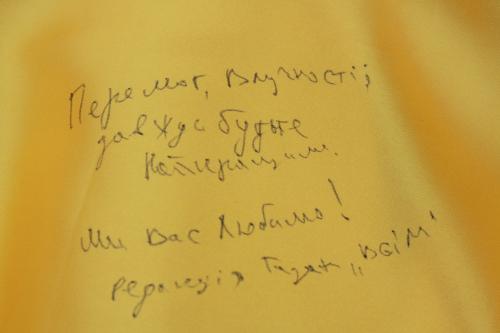 Перемог, влучності,
завжди будьте
найкращими.
Ми вас любимо!
редакція газети „ВСІМ"